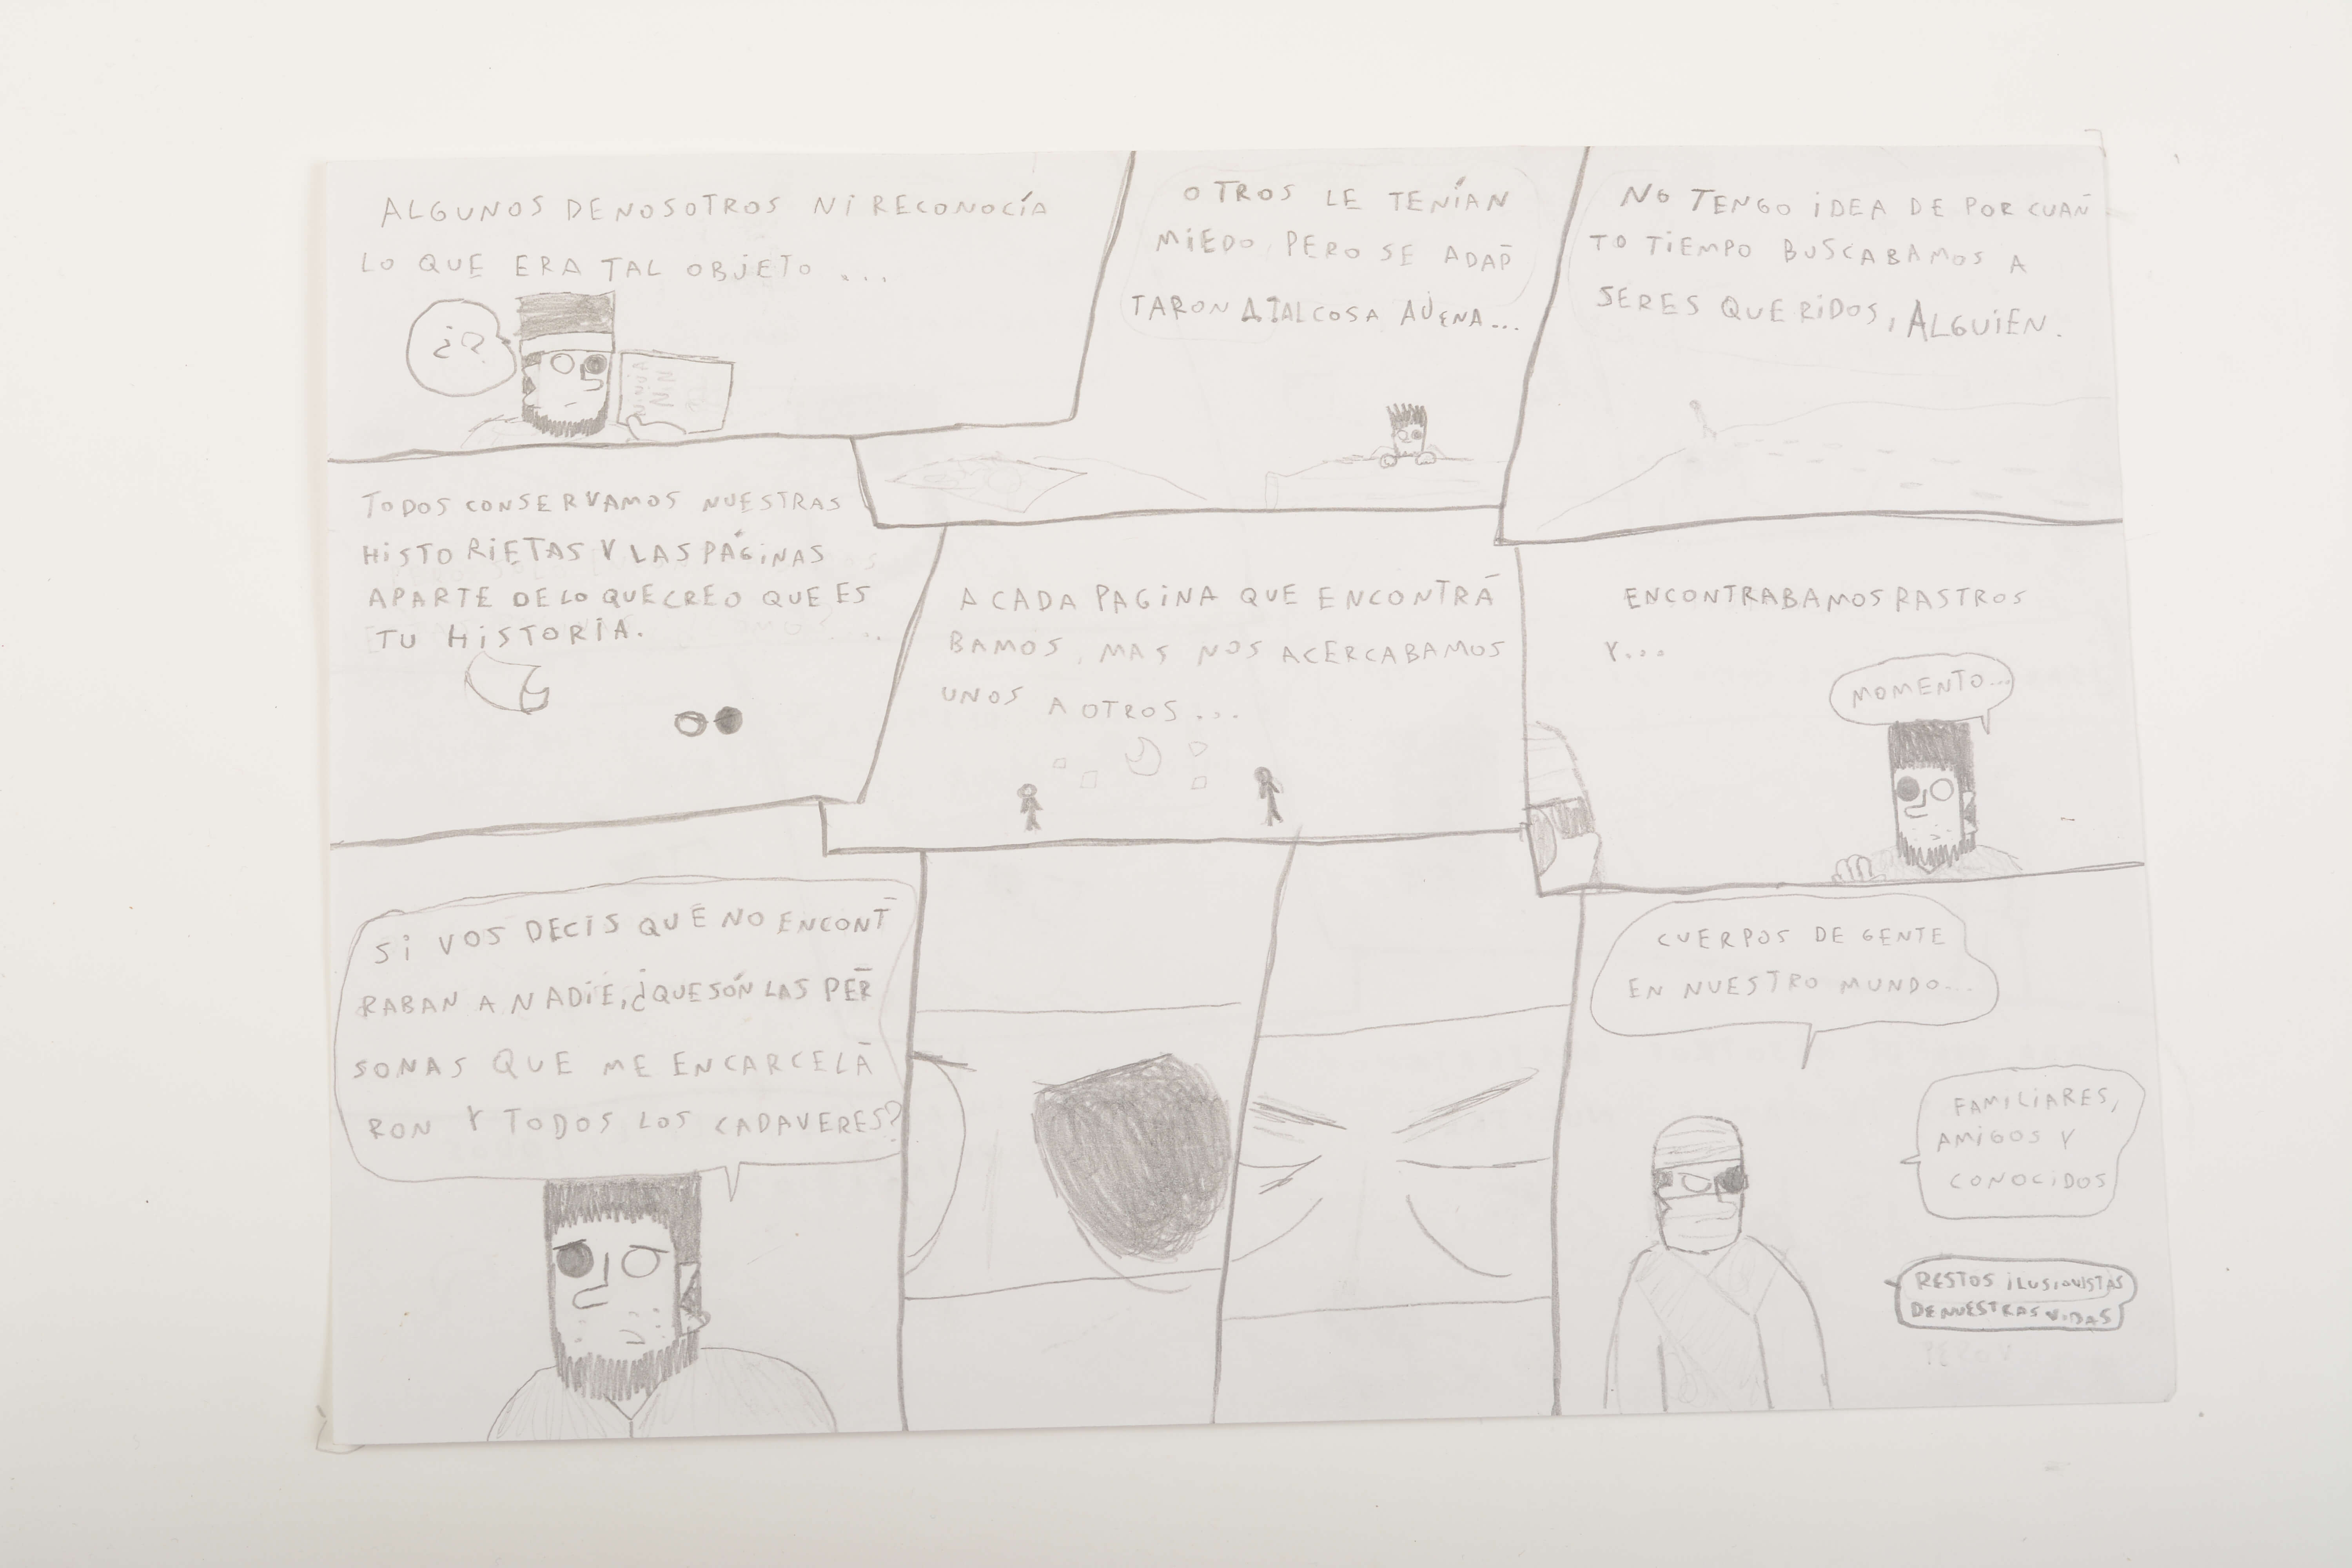 ALGUNOS DE NOSOTROS NI RECONOCÍA
LO QUE ERA TAL OBJETO...
¿?
OTROS LE TENÍAN
MIEDO, PERO SE ADAP
TARON A TAL COSA AJENA...
NO TENGO IDEA DE POR CUAN
TO TIEMPO BUSCABAMOS A
SERES QUERIDOS, ALGUIEN.
TODOS CONSERVAMOS NUESTRAS
HISTORIETAS Y LAS PÁGINAS
APARTE DE LO QUE CREO QUE ES
TU HISTORIA.
A CADA PAGINA QUE ENCONTRA
BAMOS, MAS NOS ACERCABAMOS
UNOS A OTROS...
ENCONTRABAMOS RASTROS
Y...
MOMENTO...
SI VOS DECIS QUE NO ENCONT
RABAN A NADIE, ¿QUE SÓN LAS PER
SONAS QUE ME ENCARCELA
RON Y TODOS LOS CADAVERES?
CUERPOS DE GENTE
EN NUESTRO MUNDO...
FAMILIARES,
AMIGOS Y
CONOCIDOS
RESTOS ILUSIONISTAS
DE NUESTRAS VIDAS